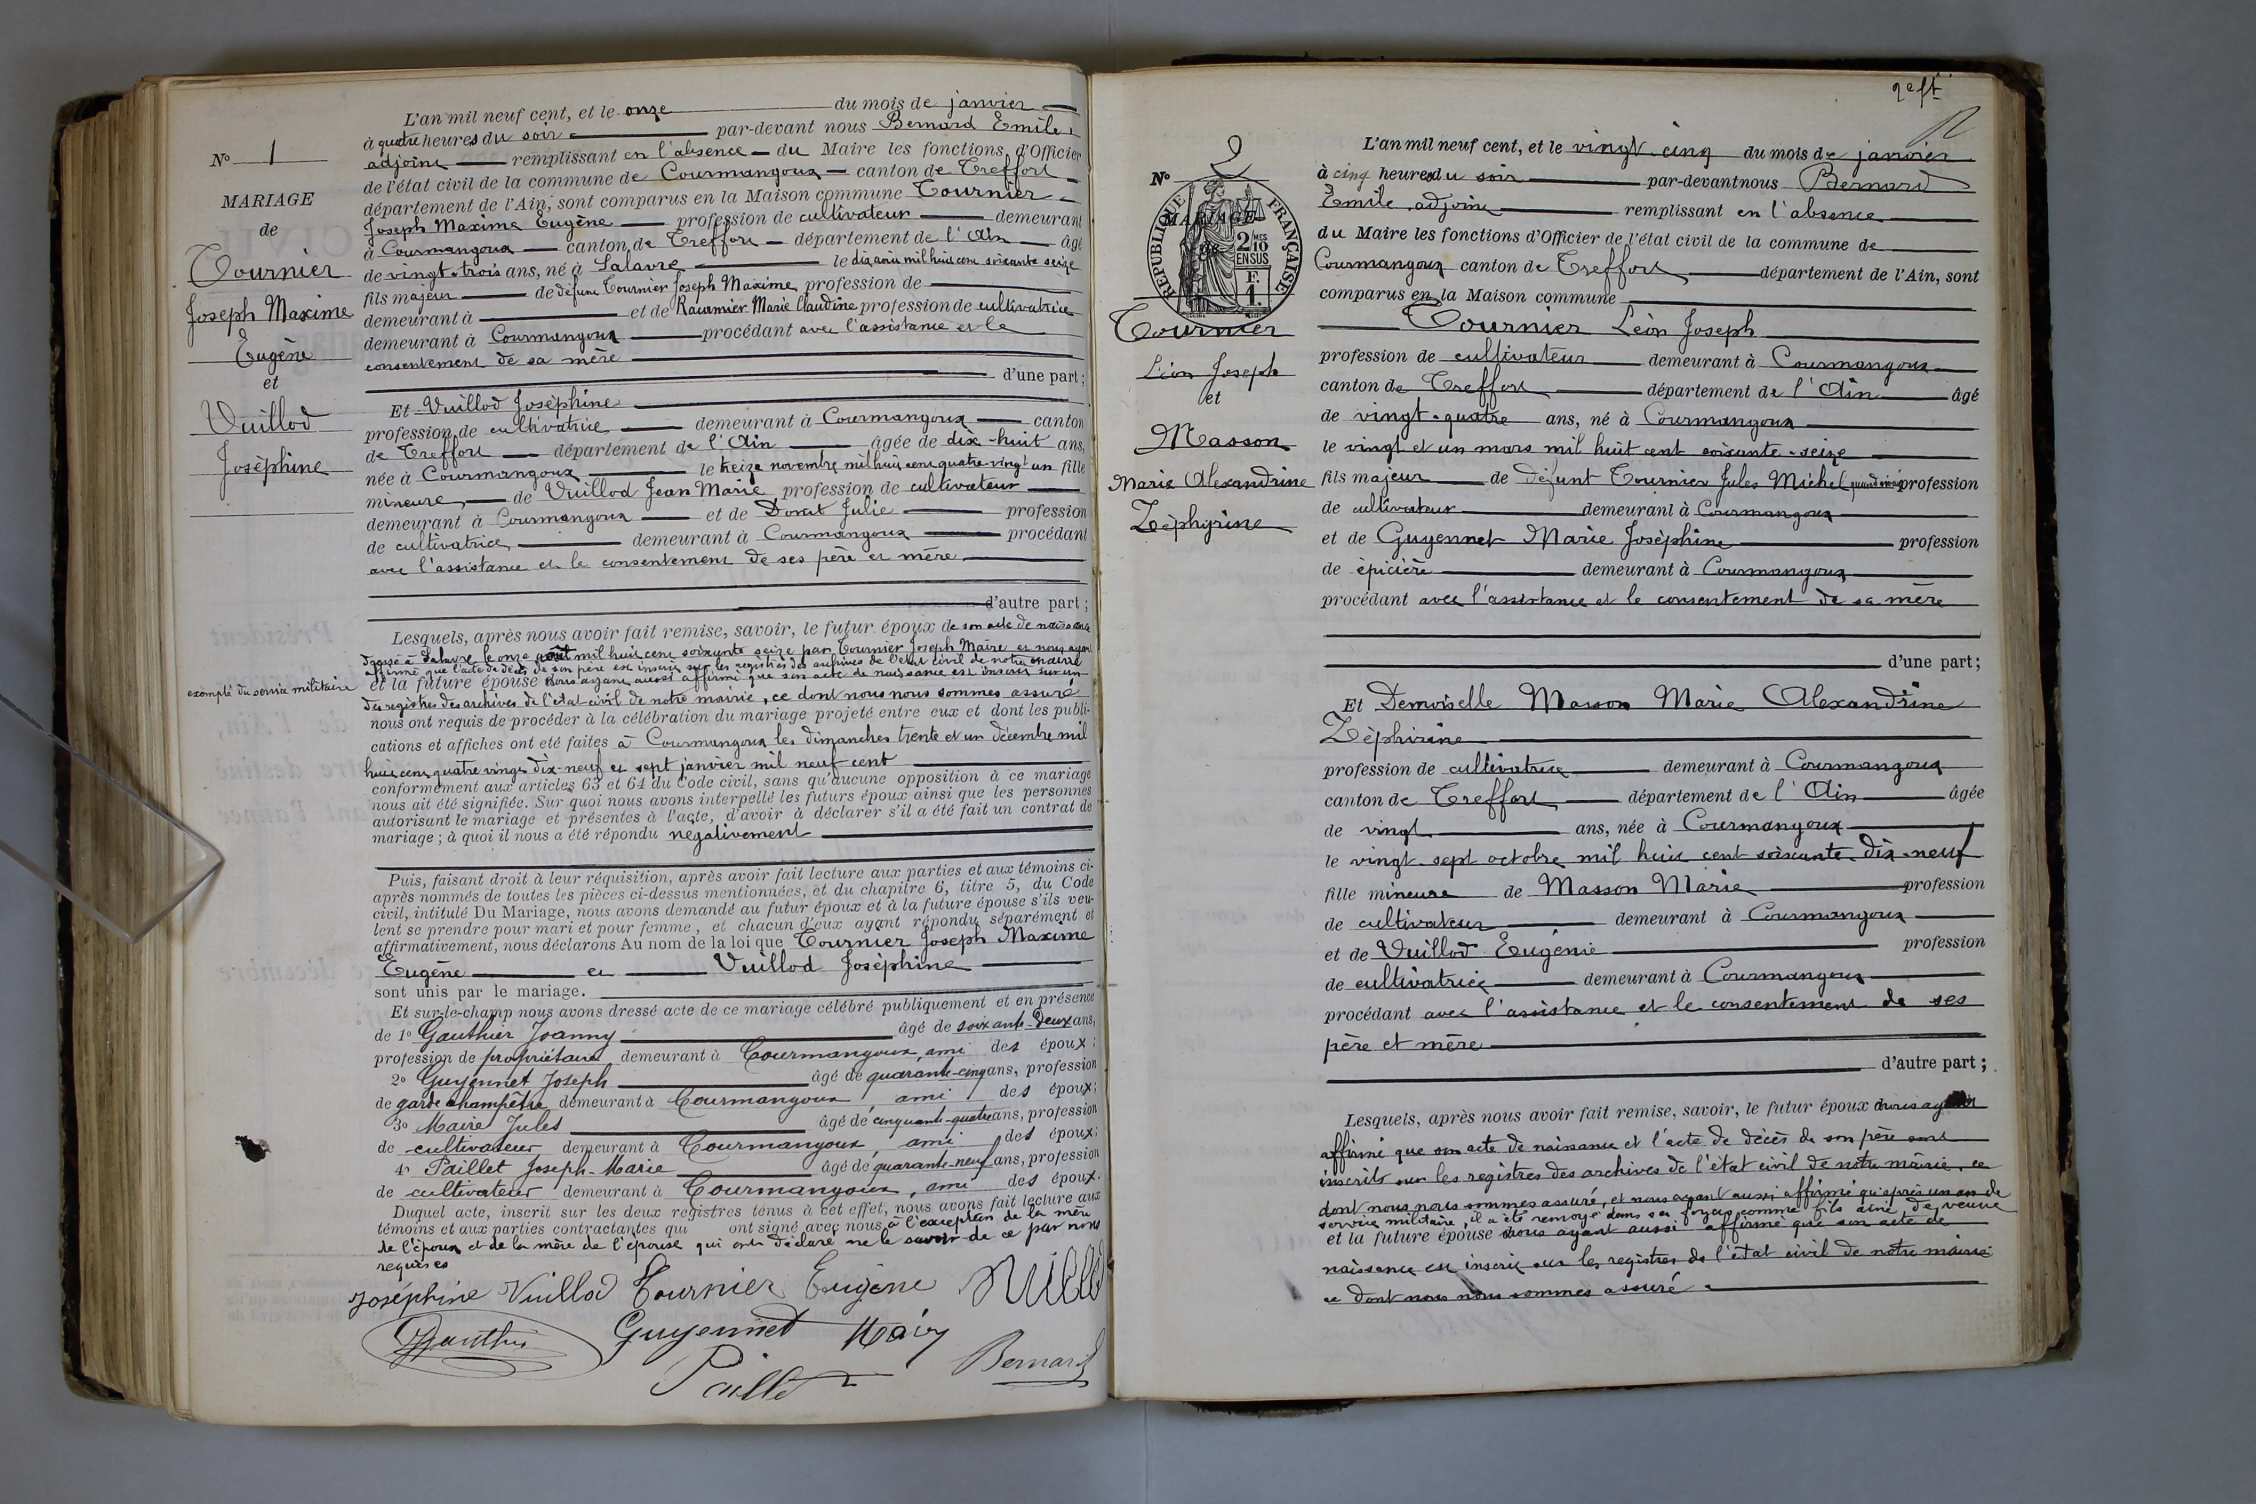 N° 1
MARIAGE
de
Tournier
Joseph Maxime
Eugène
et
Vuillod
Joséphine
exempté du service militaire
L'an mil neuf cent, et le onze du mois de janvier
à quatre heures du soir par-devant nous Bernard Emile,
adjoint remplissant en l'absence du Maire les fonctions d'Officier
de l'état civil de la commune de Courmangoux canton de Treffort
département de l'Ain, sont comparus en la Maison commune Tournier
Joseph Maxime Eugène profession de cultivateur demeurant
à Courmangoux canton de Treffort département de l'Ain âgé
de vingt-trois ans, né à Salavre le dix août mil huit cent soixante seize
fils majeur de défunt Tournier Joseph Maxime profession de
demeurant à et de Marie Claudine profession de cultivatrice
demeurant à Courmangoux procédant avec l'assistance et le
consentement de sa mère
d'une part;
Et Vuillod Joséphine
profession de cultivatrice demeurant à Courmangoux canton
de Treffort département de l'Ain âgée de dix-huit ans,
née à Courmangoux le treize novembre mil huit cent quatre-vingt un fille
mineure, de Vuillod Jean Marie profession de cultivateur
demeurant à Courmangoux et de Donat Julie profession
de cultivatrice demeurant à Courmangoux procédant
avec l'assistance et le consentement de ses père et mère
d'autre part;
Lesquels, après nous avoir fait remise, savoir, le futur époux de son acte de naissance
dressé à Salavre le onze août mil huit cent soixante seize par Tournier Joseph Maire et nous ayant
affirmé que l'acte de décès de son père est inscrit sur les registres des archives de l'état civil de notre mairie
et la future épouse nous ayant aussi affirmé que son acte de naissance est inscrit sur un
des registres des archives de l'état civil de notre mairie, ce dont nous nous sommes assuré
nous ont requis de procéder à la célébration du mariage projeté entre eux et dont les publi-
cations et affiches ont été faites à Courmangoux les dimanches trente et un décembre mil
huit cent quatre vingt dix-neuf et sept janvier mil neuf cent
conformément aux articles 63 et 64 du Code civil, sans qu'aucune opposition à ce mariage
nous ait été signifiée. Sur quoi nous avons interpellé les futurs époux ainsi que les personnes
autorisant le mariage et présentes à l'acte, d'avoir à déclarer s'il a été fait un contrat de
mariage; à quoi il nous a été répondu négativement
Puis, faisant droit à leur réquisition, après avoir fait lecture aux parties et aux témoins ci-
après nommés de toutes les pièces ci-dessus mentionnées, et du chapitre 6, titre 5, du Code
civil, intitulé Du Mariage, nous avons demandé au futur époux et à la future épouse s'ils veu-
lent se prendre pour mari et pour femme, et chacun d'eux ayant répondu séparément et
affirmativement, nous déclarons Au nom de la loi que Tournier Joseph Maxime
Eugène et Vuillod Joséphine
sont unis par le mariage.
Et sur-le-champ nous avons dressé acte de ce mariage célébré publiquement et en présence
de 1° Gauthier Joanny âgé de soixante-deux ans,
profession de propriétaire demeurant à Courmangoux, ami des époux;
2° Guyennet Joseph âgé de quarante-cinq ans, profession
de garde champêtre demeurant à Courmangoux, ami des époux;
3° Maire Jules âgé de cinquante-quatre ans, profession
de cultivateur demeurant à Courmangoux, ami des époux;
4° Paillet Joseph-Marie âgé de quarante-neuf ans, profession
de cultivateur demeurant à Courmangoux, ami des époux.
Duquel acte, inscrit sur les deux registres tenus à cet effet, nous avons fait lecture aux
témoins et aux parties contractantes qui ont signé avec nous, à l'exception de la mère
de l'époux et de la mère de l'épouse qui ont déclaré ne le savoir de ce par nous
requises
Joséphine Vuillod Tournier Eugène
Gauthier Guyennet
Paillet Bernard
N° 2
RÉPUBLIQUE FRANÇAISE
2/10 EN SUS
F. 1.
MARIAGE
de
Tournier
Léon Joseph
et
Masson
Marie Alexandrine
Zéphyrine
L'an mil neuf cent, et le vingt cinq du mois de janvier
à cinq heures du soir par-devant nous Bernard
Emile adjoint remplissant en l'absence
du Maire les fonctions d'Officier de l'état civil de la commune de
Courmangoux canton de Treffort département de l'Ain, sont
comparus en la Maison commune
Tournier Léon Joseph
profession de cultivateur demeurant à Courmangoux
canton de Treffort département de l'Ain âgé
de vingt-quatre ans, né à Courmangoux
le vingt et un mars mil huit cent soixante-seize
fils majeur de défunt Tournier Jules Michel profession
de cultivateur demeurant à Courmangoux
et de Guyennet Marie Joséphine profession
de épicière demeurant à Courmangoux
procédant avec l'assistance et le consentement de sa mère
d'une part;
Et Demoiselle Masson Marie Alexandrine
Zéphirine
profession de cultivatrice demeurant à Courmangoux
canton de Treffort département de l'Ain âgée
de vingt ans, née à Courmangoux
le vingt-sept octobre mil huit cent soixante-dix-neuf
fille mineure de Masson Marie profession
de cultivateur demeurant à Courmangoux
et de Vuillod Eugénie profession
de cultivatrice demeurant à Courmangoux
procédant avec l'assistance et le consentement de ses
père et mère
d'autre part;
Lesquels, après nous avoir fait remise, savoir, le futur époux nous ayant
affirmé que son acte de naissance et l'acte de décès de son père sont
inscrits sur les registres des archives de l'état civil de notre mairie, ce
dont nous nous sommes assuré, et nous ayant aussi affirmé qu'après un an de
service militaire, il a été renvoyé dans ses foyers comme fils aîné de veuve
et la future épouse nous ayant aussi affirmé que son acte de
naissance est inscrit sur les registres de l'état civil de notre mairie
ce dont nous nous sommes assuré